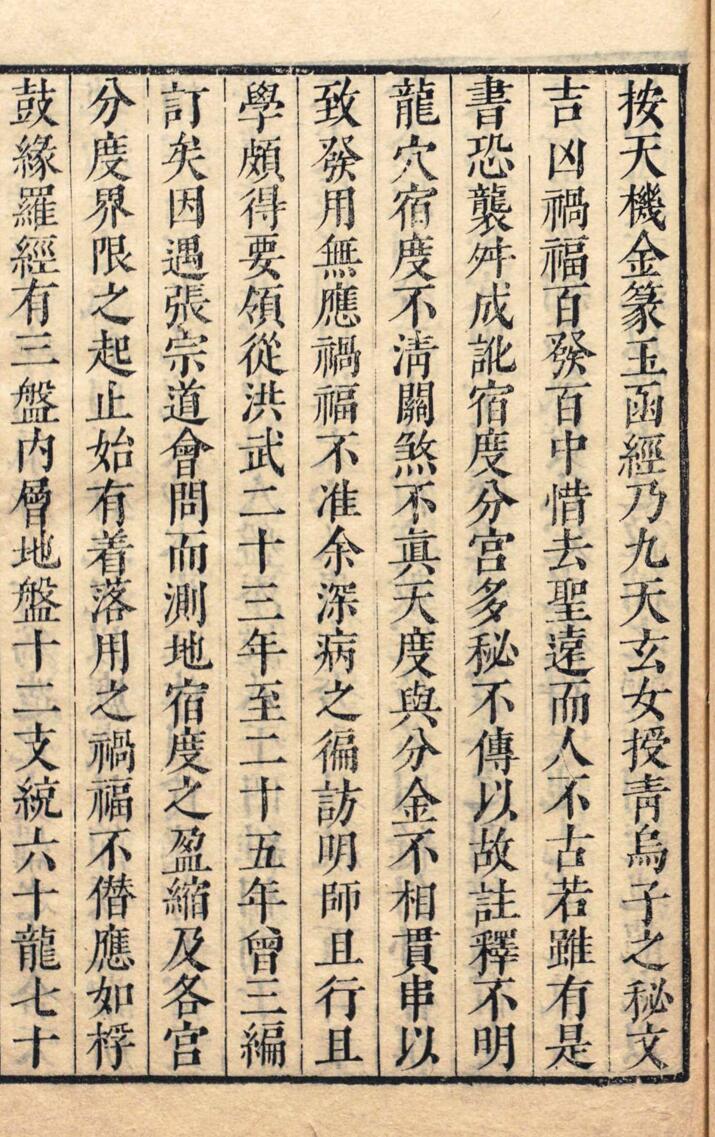 按天機金篆玉函經乃九天玄女授青烏子之秘文
吉凶禍福百發百中惜去聖遠而人不古若雖有是
書恐襲舛成訛宿度分宮多秘不傳以故註釋不明
龍穴宿度不清關煞不眞天度與分金不相貫串以
致發用無應禍福不准余深病之徧訪明師且行且
學頗得要領從洪武二十三年至二十五年曾三編
訂矣因遇張宗道會問而測地宿度之盈縮及各宮
分度界限之起止始有着落用之禍福不僭應如桴
鼓緣羅經有三盤内層地盤十二支統六十龍七十